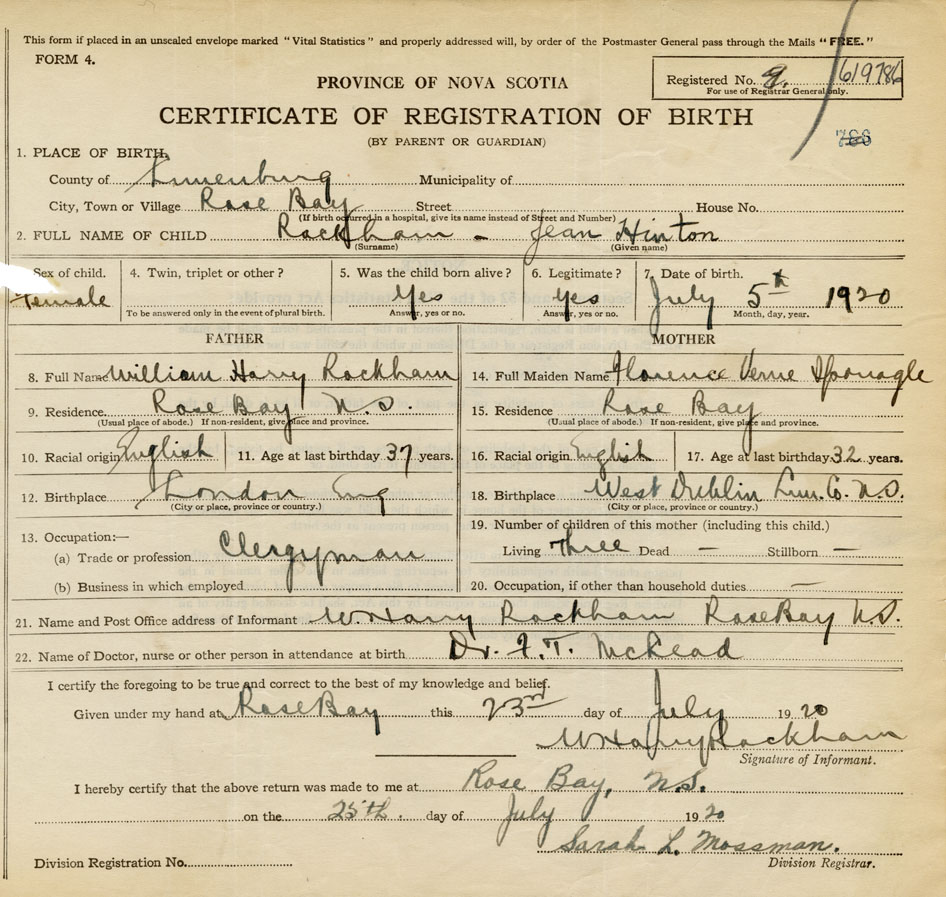 This form if placed in an unsealed envelope marked "Vital Statistics" and properly addressed will, by order of the Postmaster General pass through the Mails "FREE."
FORM 4.
PROVINCE OF NOVA SCOTIA
Registered No. 9. 619786
For use of Registrar General only.
CERTIFICATE OF REGISTRATION OF BIRTH
(BY PARENT OR GUARDIAN)
1. PLACE OF BIRTH.
County of Lunenburg Municipality of
City, Town or Village Rose Bay Street House No.
(If birth occurred in a hospital, give its name instead of Street and Number)
2. FULL NAME OF CHILD Rackham - Jean Hinton
(Surname) (Given name)
Sex of child. 4. Twin, triplet or other? 5. Was the child born alive? 6. Legitimate? 7. Date of birth.
Female Yes Yes July 5th 1920
To be answered only in the event of plural birth. Answer, yes or no. Answer, yes or no. Month, day, year.
FATHER MOTHER
8. Full Name William Harry Rackham 14. Full Maiden Name Florence Verne Sponagle
9. Residence Rose Bay N.S. 15. Residence Rose Bay
(Usual place of abode.) If non-resident, give place and province. (Usual place of abode.) If non-resident, give place and province.
10. Racial origin English 11. Age at last birthday 37 years. 16. Racial origin English 17. Age at last birthday 32 years.
12. Birthplace London Eng 18. Birthplace West Dublin Lun. Co. N.S.
(City or place, province or country.) (City or place, province or country.)
13. Occupation:— 19. Number of children of this mother (including this child.)
(a) Trade or profession Clergyman Living Three Dead — Stillborn —
(b) Business in which employed 20. Occupation, if other than household duties —
21. Name and Post Office address of Informant W. Harry Rackham Rose Bay N.S.
22. Name of Doctor, nurse or other person in attendance at birth Dr. F.T. McLeod
I certify the foregoing to be true and correct to the best of my knowledge and belief.
Given under my hand at Rose Bay this 23rd day of July 1920
W Harry Rackham
Signature of Informant.
I hereby certify that the above return was made to me at Rose Bay, N.S.
on the 25th. day of July 1920
Sarah L. Mossman.
Division Registration No. Division Registrar.